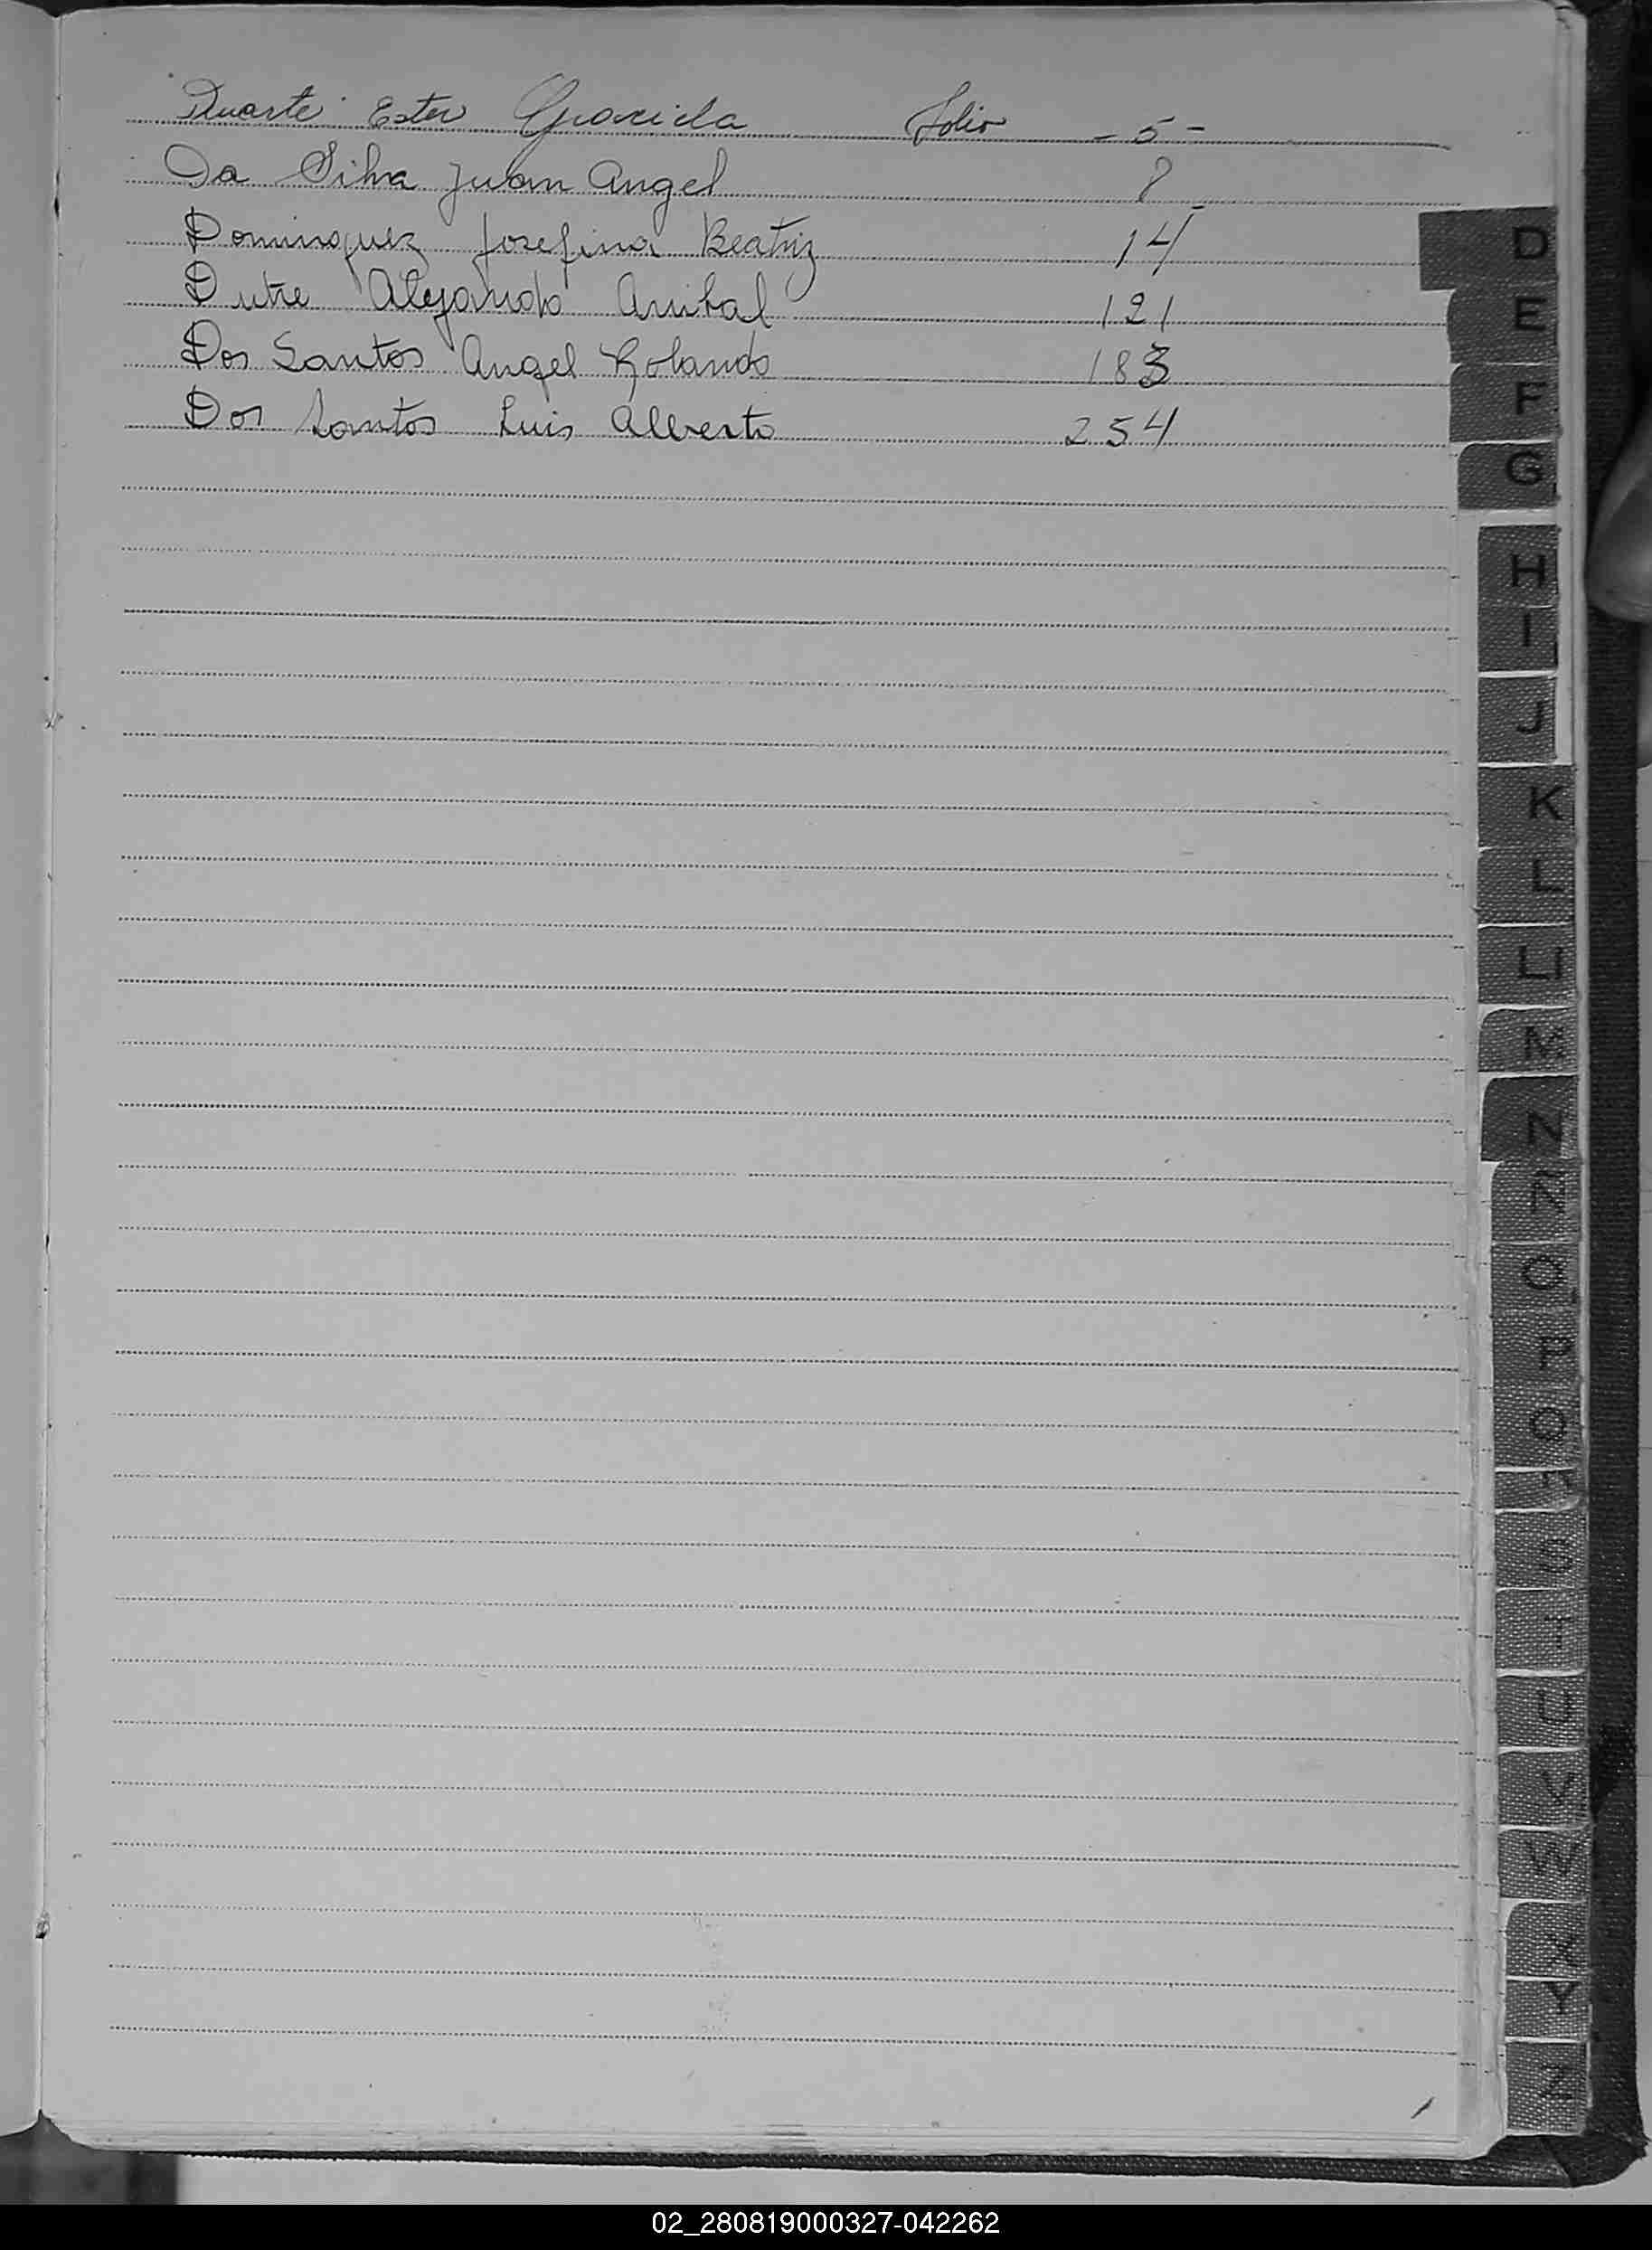 Duarte Ester Graciela Folio - 5 -
Da Silva Juan Angel 8
Dominguez Josefina Beatriz 14
Dutre Alejandro Anibal 121
Dos Santos Angel Rolando 183
Dos Santos Luis Alberto 254
D
E
F
G
H
I
J
K
L
LL
M
N
Ñ
O
P
Q
R
S
T
U
V
W
X
Y
Z
02_280819000327-042262